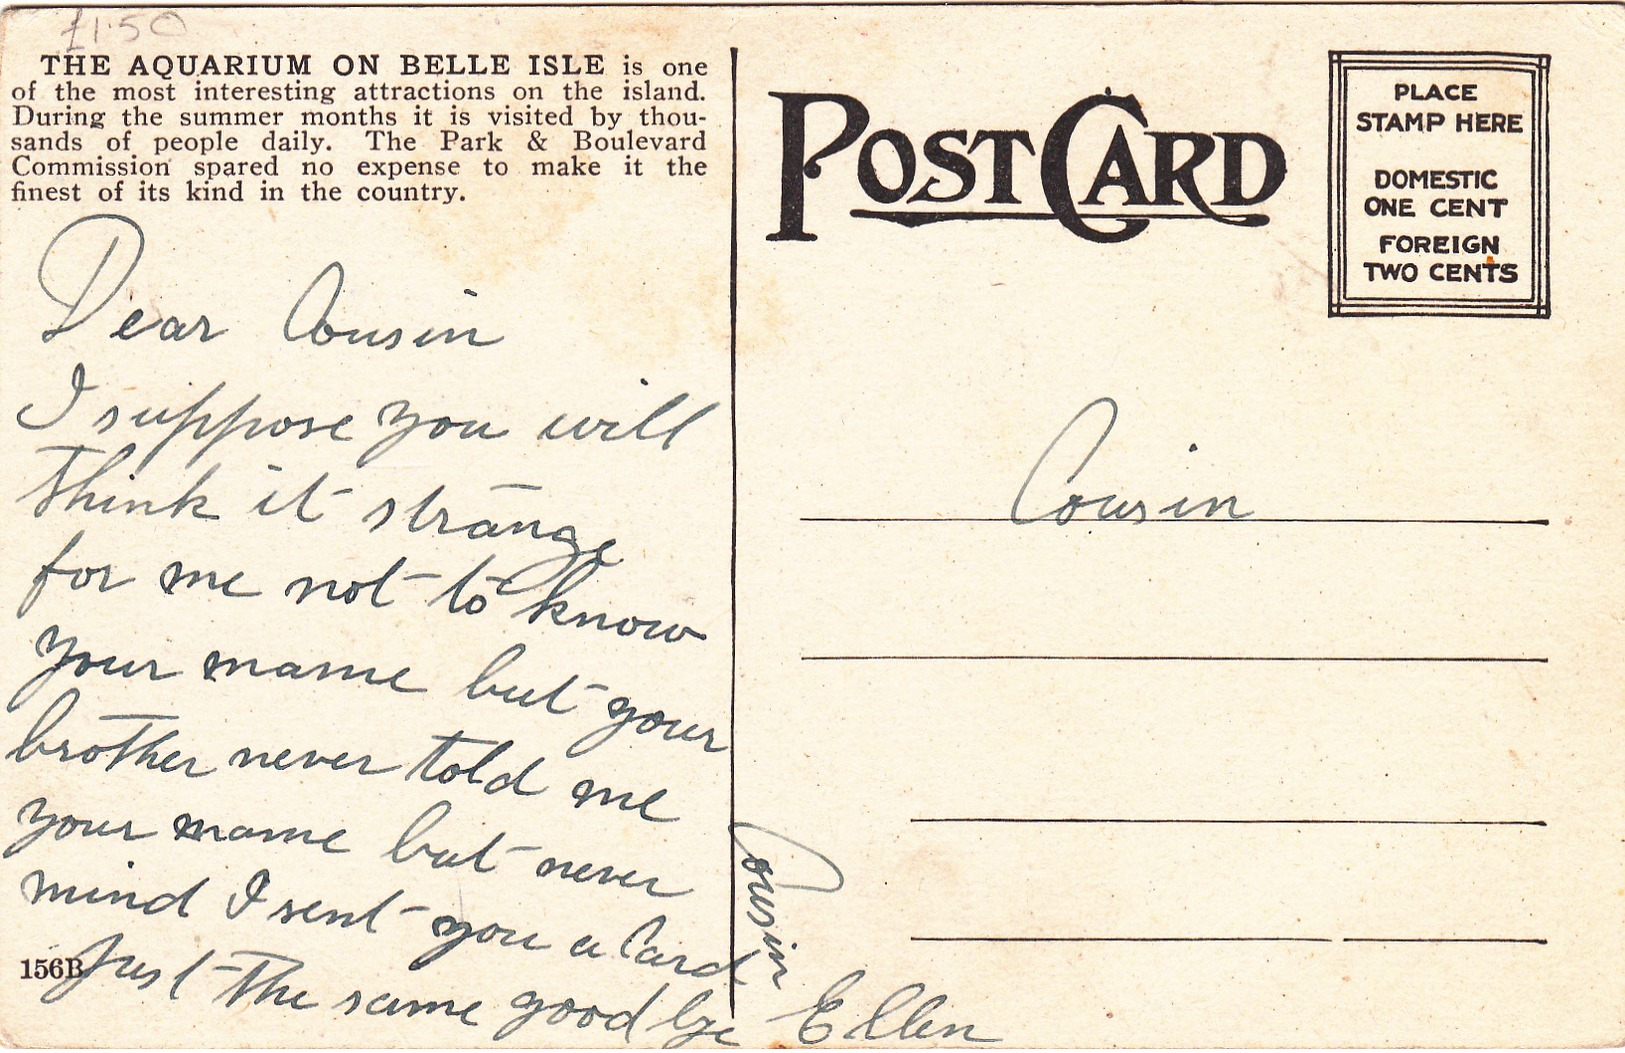 £1.50
THE AQUARIUM ON BELLE ISLE is one
of the most interesting attractions on the island.
During the summer months it is visited by thou-
sands of people daily. The Park & Boulevard
Commission spared no expense to make it the
finest of its kind in the country.
Dear Cousin
I suppose you will
think it strange
for me not to know
your name but your
brother never told me
your name but never
mind I sent you a Card
just the same good bye
Cousin
Ellen
156B
POST CARD
PLACE
STAMP HERE
DOMESTIC
ONE CENT
FOREIGN
TWO CENTS
Cousin